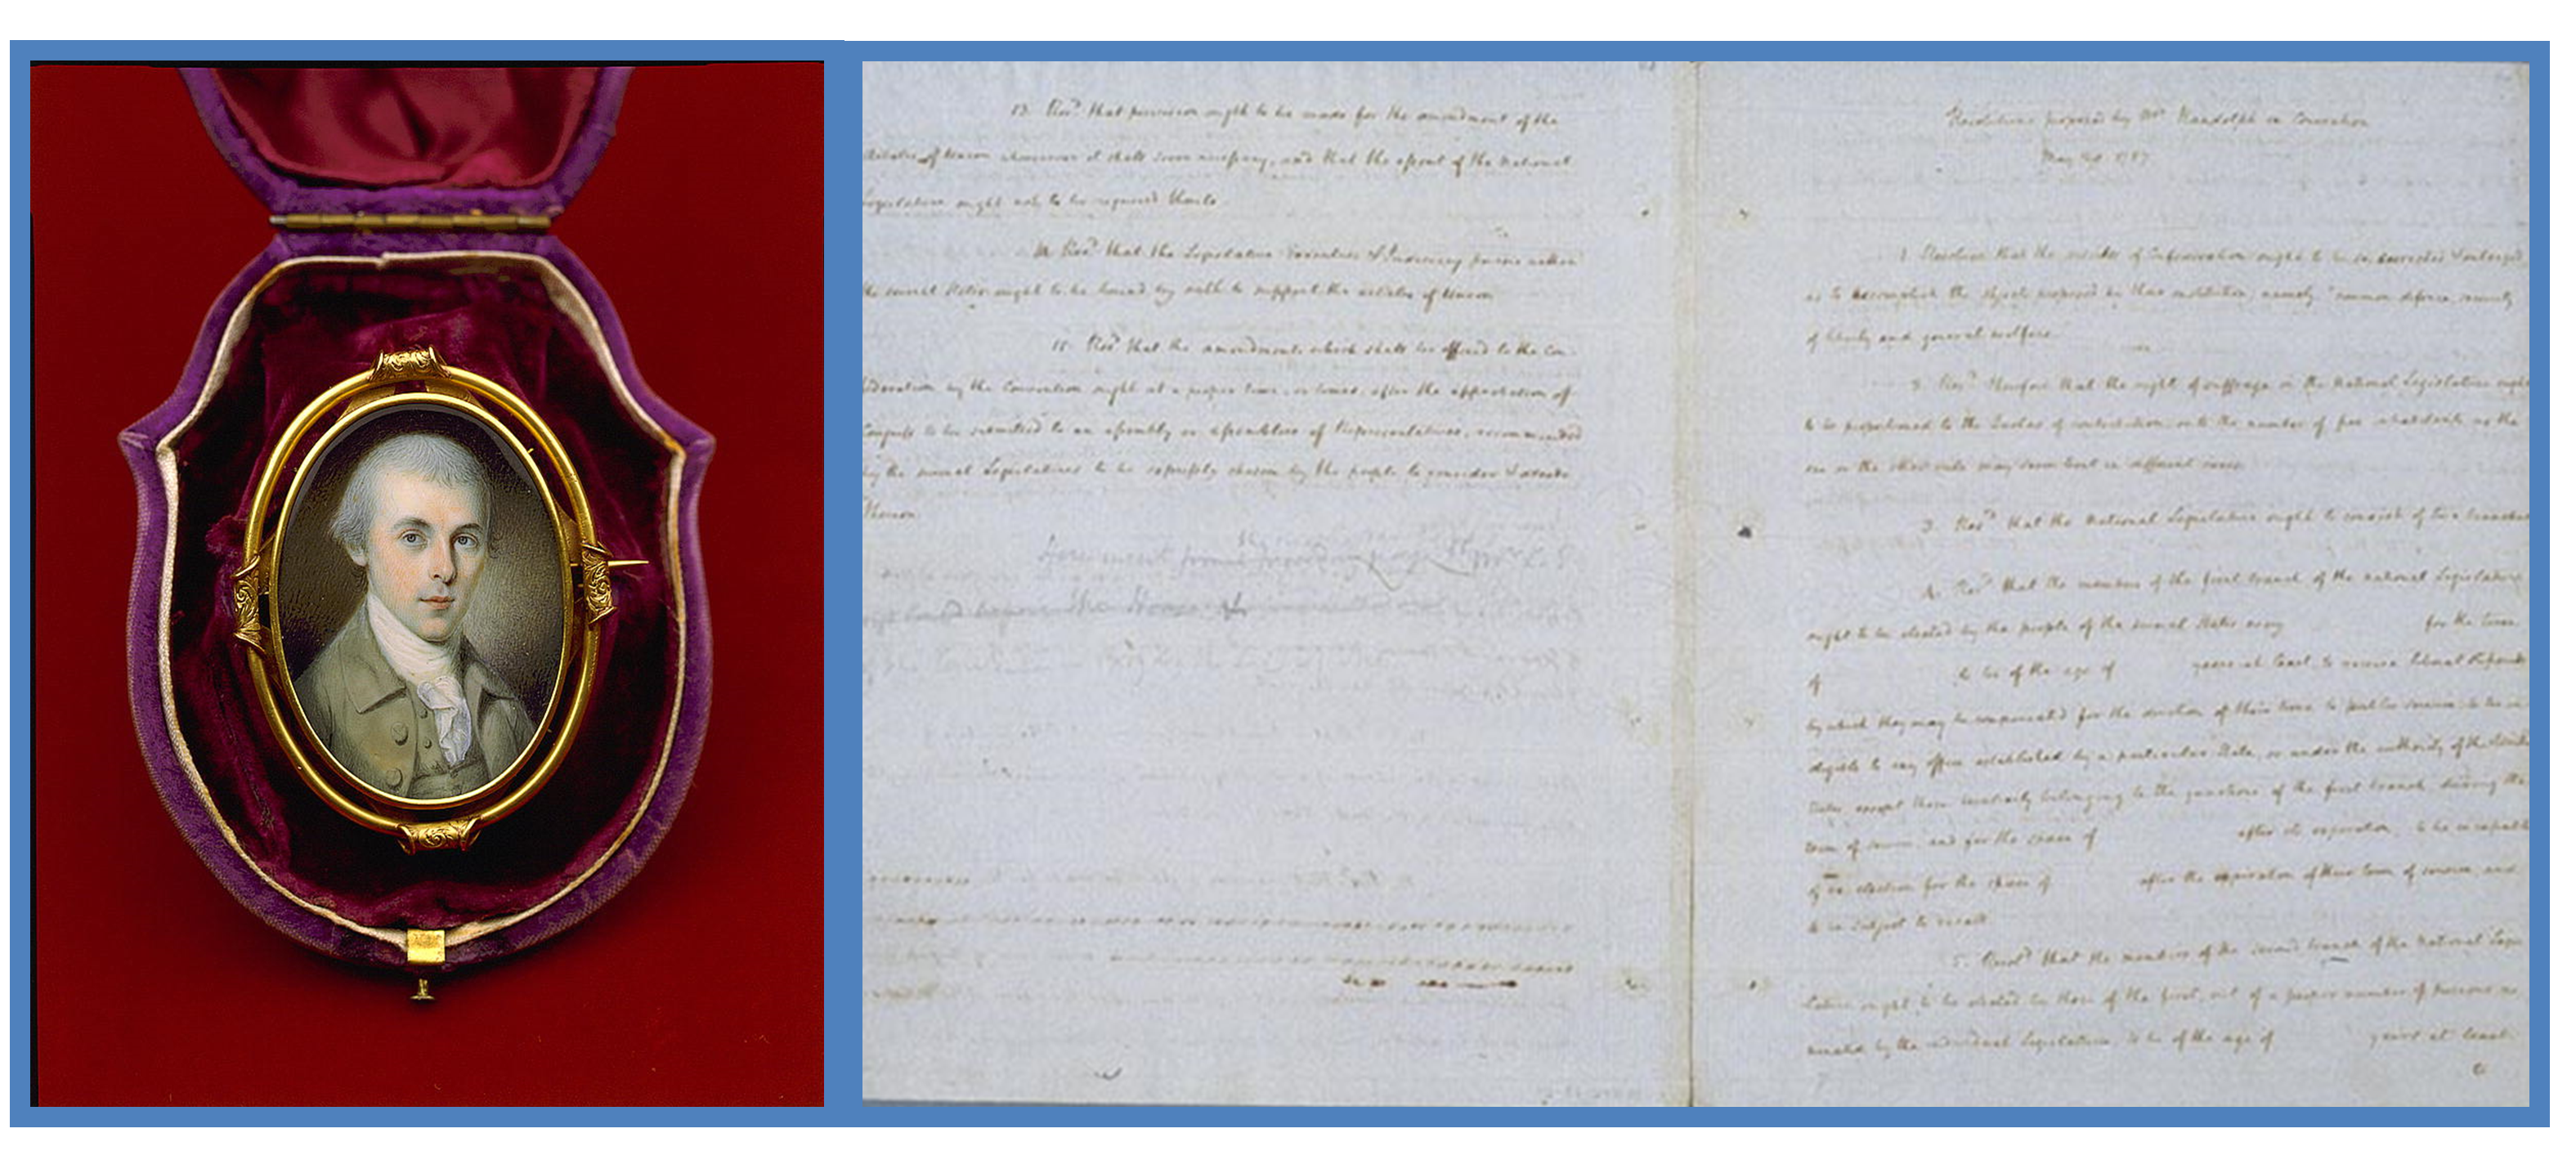 13. Resd. that provision ought to be made for the amendment of the
Articles of Union whensoever it shall seem necessary, and that the assent of the National
Legislature ought not to be required thereto.
14. Resd. that the Legislative Executive & Judiciary powers within
the several States ought to be bound by oath to support the articles of Union
15. Resd. that the amendments which shall be offered to the Con-
federation by the Convention ought at a proper time, or times, after the approbation of
Congress to be submitted to an assembly or assemblies of Representatives, recommended
by the several Legislatures to be expressly chosen by the people to consider & decide
thereon.
Resolutions proposed by Mr. Randolph in Convention
May 29. 1787
1. Resolved that the articles of Confederation ought to be so corrected & enlarged
as to accomplish the objects proposed by their institution; namely "common defence, security
of liberty and general welfare.
2. Resd. therefore that the right of suffrage in the National Legislature ought
to be proportioned to the Quotas of contribution, or to the number of free inhabitants, as the
one or the other rule may seem best in different cases.
3. Resd. that the National Legislature ought to consist of two branches
4. Resd. that the members of the first branch of the national Legislature
ought to be elected by the people of the several States every for the term
of to be of the age of years at least, to receive liberal stipends
by which they may be compensated for the devotion of their time to public service; to be in-
eligible to any office established by a particular State, or under the authority of the United
States, except those peculiarly belonging to the functions of the first branch, during the
term of service, and for the space of after its expiration; to be incapable
of re-election for the space of after the expiration of their term of service, and
to be subject to recall
5. Resold. that the members of the second branch of the National Legis-
lature ought to be elected by those of the first, out of a proper number of persons no-
minated by the individual Legislatures, to be of the age of years at least